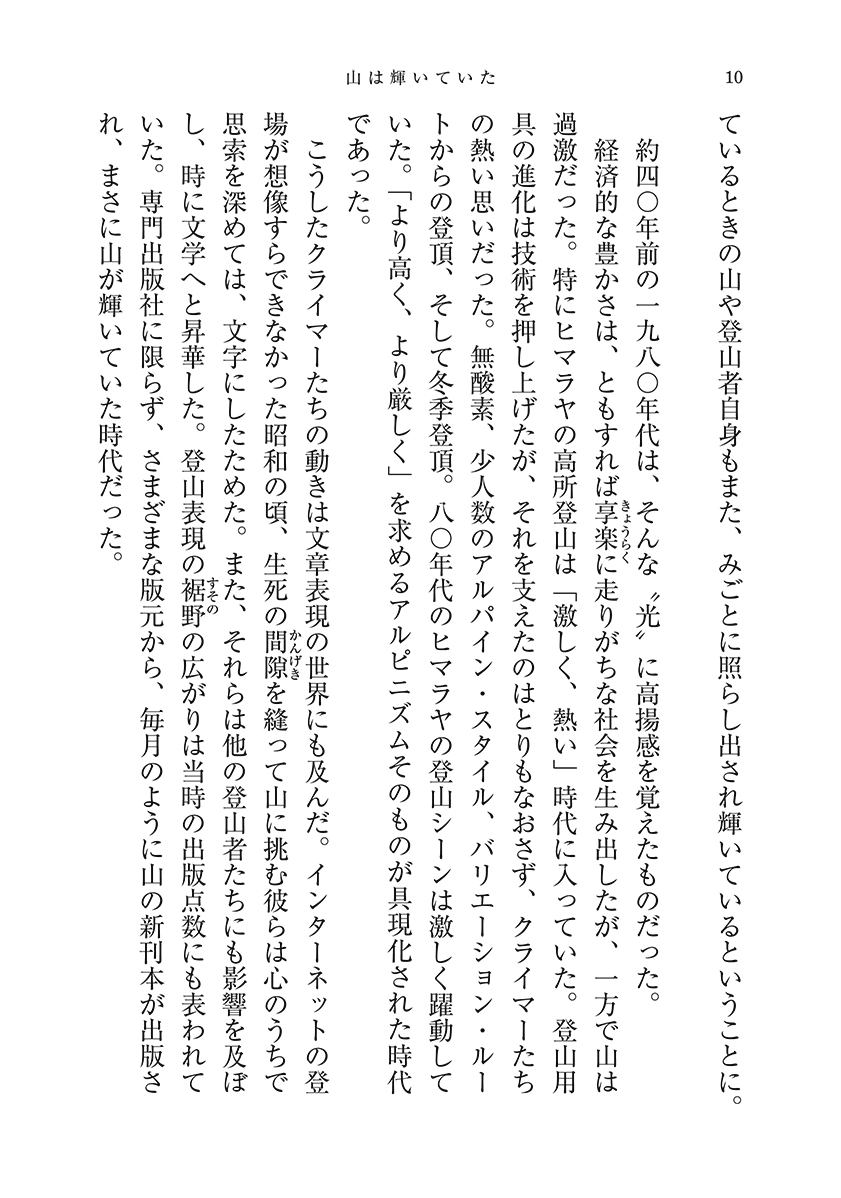 山は輝いていた
10
ているときの山や登山者自身もまた、みごとに照らし出され輝いているということに。
約四〇年前の一九八〇年代は、そんな〝光〟に高揚感を覚えたものだった。
経済的な豊かさは、ともすれば享楽に走りがちな社会を生み出したが、一方で山は
きょうらく
過激だった。特にヒマラヤの高所登山は「激しく、熱い」時代に入っていた。登山用
具の進化は技術を押し上げたが、それを支えたのはとりもなおさず、クライマーたち
の熱い思いだった。無酸素、少人数のアルパイン・スタイル、バリエーション・ルー
トからの登頂、そして冬季登頂。八〇年代のヒマラヤの登山シーンは激しく躍動して
いた。「より高く、より厳しく」を求めるアルピニズムそのものが具現化された時代
であった。
こうしたクライマーたちの動きは文章表現の世界にも及んだ。インターネットの登
場が想像すらできなかった昭和の頃、生死の間隙を縫って山に挑む彼らは心のうちで
かんげき
思索を深めては、文字にしたためた。また、それらは他の登山者たちにも影響を及ぼ
し、時に文学へと昇華した。登山表現の裾野の広がりは当時の出版点数にも表われて
すその
いた。専門出版社に限らず、さまざまな版元から、毎月のように山の新刊本が出版さ
れ、まさに山が輝いていた時代だった。